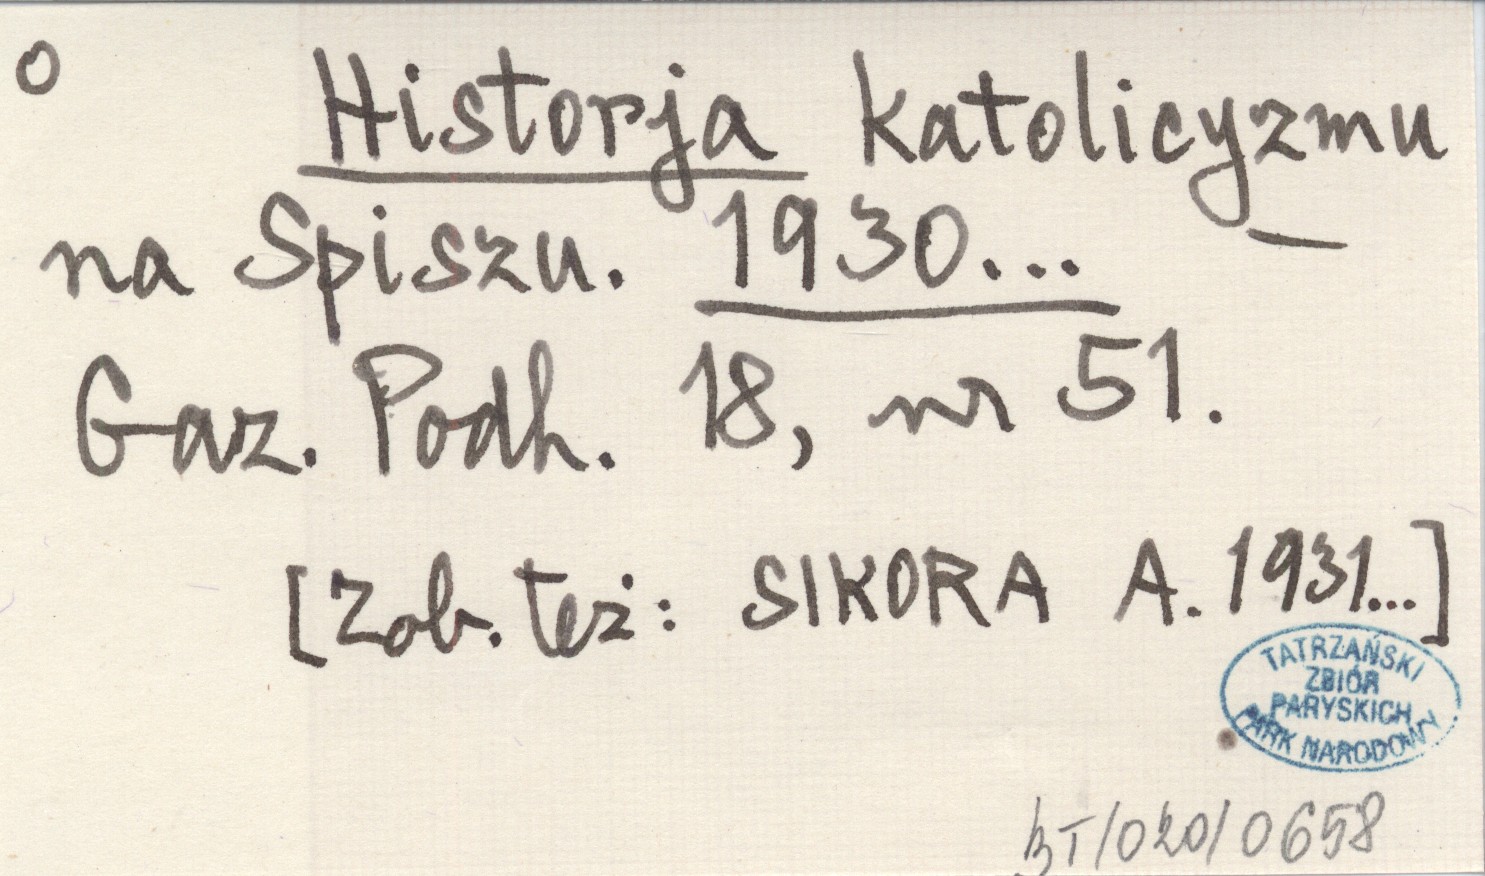 o
Historja katolicyzmu
na Spiszu. 1930...
Gaz. Podh. 18, nr 51.
[Zob. też: SIKORA A. 1931...]
TATRZAŃSKI
ZBIÓR
PARYSKICH
PARK NARODOWY
BT/020/0658